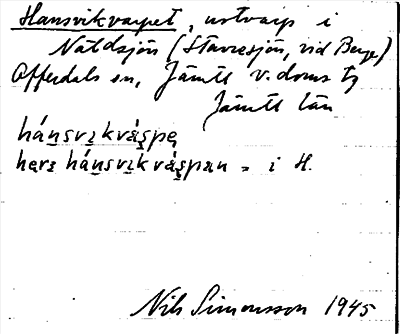 Hansvikvarpet, notvarp i
Näldsjön (Storsjön, vid Berge)
Offerdals sn, Jämtl v. doms tg
Jämtl län
hánsvɪkváʂpə
hərɛ hánsvɪkváʂpan = i H.
Nils Simonsson 1945